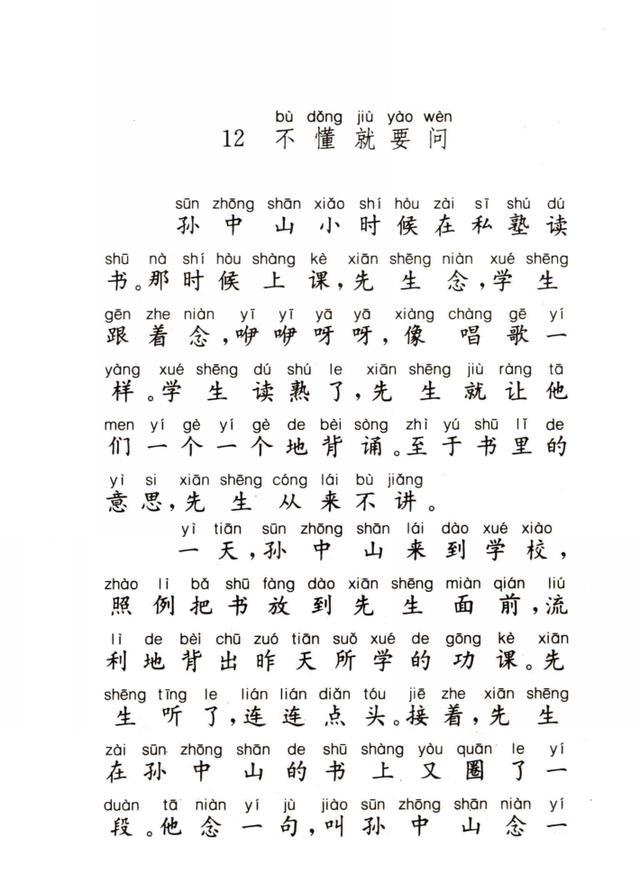 bù dǒng jiù yào wèn
12 不懂就要问
sūn zhōng shān xiǎo shí hòu zài sī shú dú
孙中山小时候在私塾读
shū nà shí hòu shàng kè xiān shēng niàn xué shēng
书。那时候上课,先生念,学生
gēn zhe niàn yī yī yā yā xiàng chàng gē yí
跟着念,咿咿呀呀,像唱歌一
yàng xué shēng dú shú le xiān shēng jiù ràng tā
样。学生读熟了,先生就让他
men yí gè yí gè de bèi sòng zhì yú shū lǐ de
们一个一个地背诵。至于书里的
yì si xiān shēng cóng lái bù jiǎng
意思,先生从来不讲。
yì tiān sūn zhōng shān lái dào xué xiào
一天,孙中山来到学校,
zhào lì bǎ shū fàng dào xiān shēng miàn qián liú
照例把书放到先生面前,流
lì de bèi chū zuó tiān suǒ xué de gōng kè xiān
利地背出昨天所学的功课。先
shēng tīng le lián lián diǎn tóu jiē zhe xiān shēng
生听了,连连点头。接着,先生
zài sūn zhōng shān de shū shàng yòu quān le yí
在孙中山的书上又圈了一
duàn tā niàn yí jù jiào sūn zhōng shān niàn yí
段。他念一句,叫孙中山念一